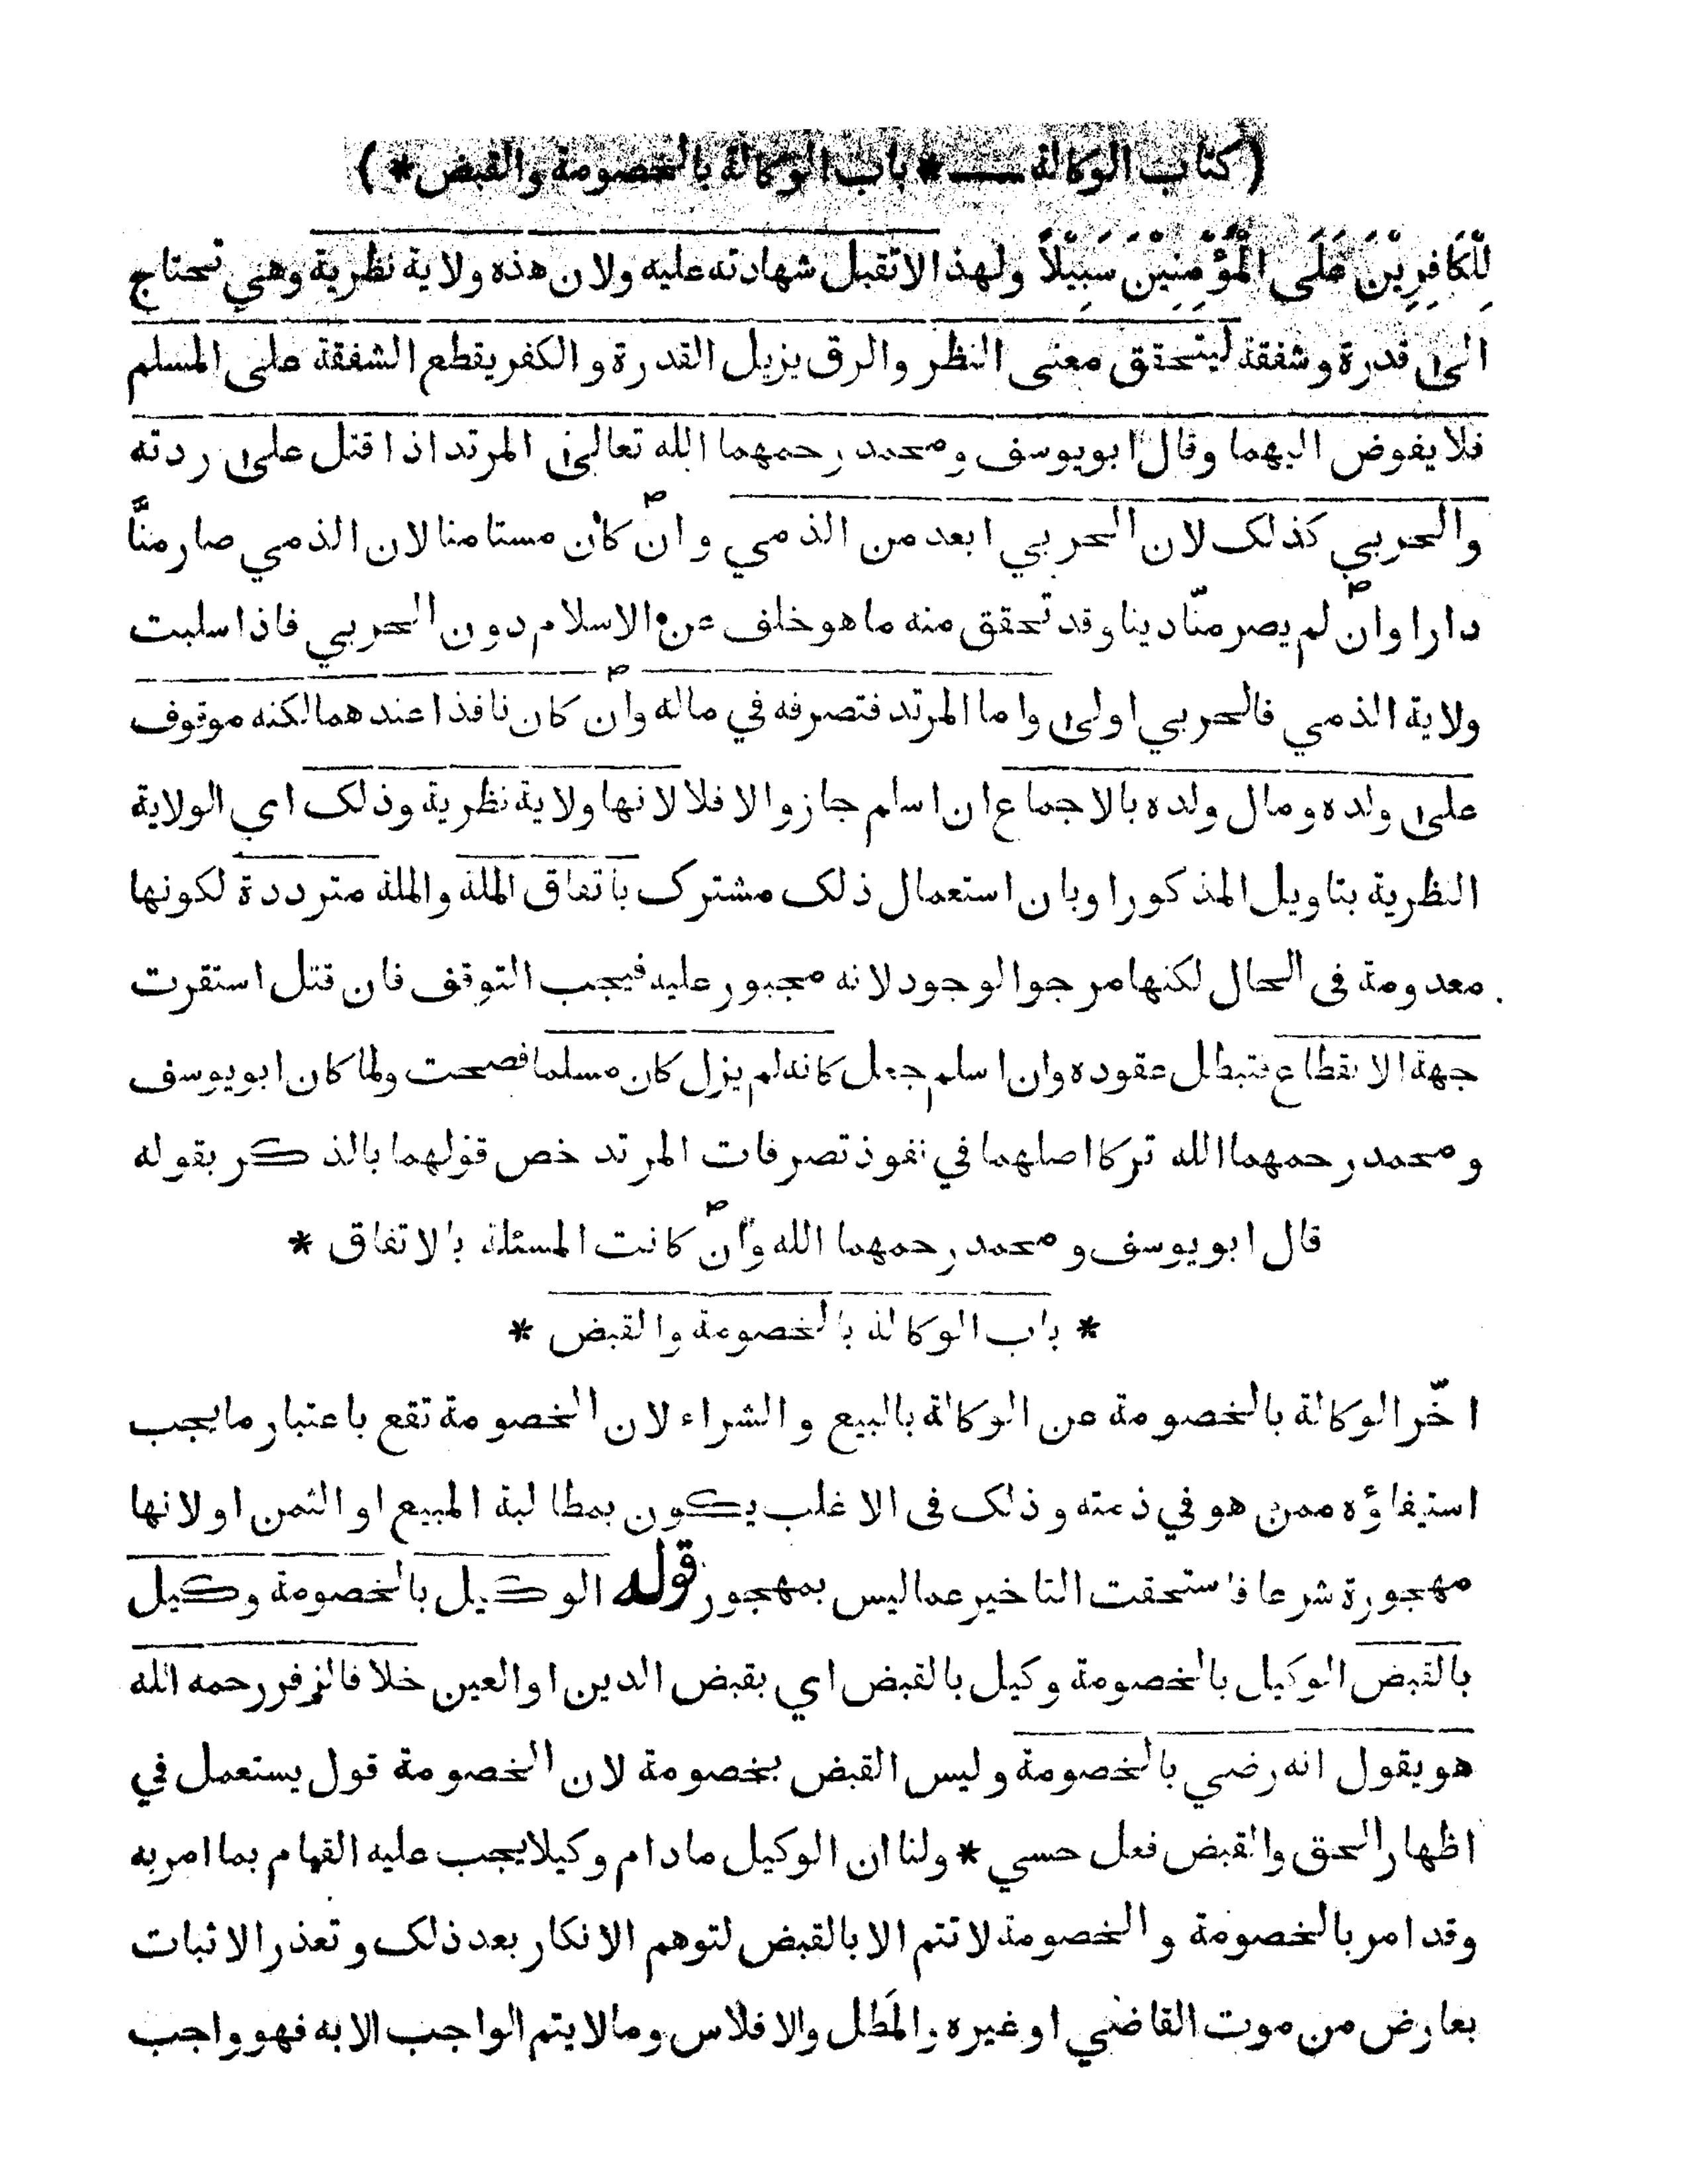 ( كتاب الوكالة —— * باب الوكالة بالخصومة والقبض * )
لِلْكَافِرِيْنَ عَلَى الْمُؤْمِنِيْنَ سَبِيْلاً ولهذا لاتقبل شهادته عليه ولان هذه ولاية نظرية وهي تحتاج
الى قدرة وشفقة ليتحقق معنى النظر والرق يزيل القدرة والكفر يقطع الشفقة على المسلم
فلا يفوض اليهما وقال ابويوسف ومحمد رحمهما الله تعالى المرتد اذا قتل على ردته
والحربي كذلك لان الحربي ابعد من الذمي وان كان مستامنا لان الذمي صار منّا
دارا وان لم يصر منّا دينا وقد تحقق منه ما هو خلف عن الاسلام دون الحربي فاذا سلبت
ولاية الذمي فالحربي اولى واما المرتد فتصرفه في ماله وان كان نافذا عندهما لكنه موقوف
على ولده ومال ولده بالاجماع ان اسلم جاز والا فلا لانها ولاية نظرية وذلك اي الولاية
النظرية بتاويل المذكور اوبان استعمال ذلك مشترك باتفاق الملة والملة مترددة لكونها
معدومة فى الحال لكنها مرجوا لوجود لانه مجبور عليه فيجب التوقف فان قتل استقرت
جهة الانقطاع فتبطل عقوده وان اسلم جعل كانه لم يزل كان مسلما فصحت ولما كان ابويوسف
ومحمد رحمهما الله تركا اصلهما في نفوذ تصرفات المرتد خص قولهما بالذكر بقوله
قال ابويوسف ومحمد رحمهما الله وان كانت المسئلة بالاتفاق *
* باب الوكالة بالخصومة والقبض *
اخّر الوكالة بالخصومة عن الوكالة بالبيع والشراء لان الخصومة تقع باعتبار مايجب
استيفاؤه ممن هو في ذمته وذلك فى الاغلب يكون بمطالبة المبيع او الثمن اولانها
مهجورة شرعا فاستحقت التاخير عما ليس بمهجور قوله الوكيل بالخصومة وكيل
بالقبض الوكيل بالخصومة وكيل بالقبض اي بقبض الدين او العين خلافا لزفر رحمه الله
هو يقول انه رضي بالخصومة وليس القبض بخصومة لان الخصومة قول يستعمل في
اظهار الحق والقبض فعل حسي * ولنا ان الوكيل مادام وكيلا يجب عليه القيام بما امر به
وقد امر بالخصومة والخصومة لاتتم الا بالقبض لتوهم الانكار بعد ذلك وتعذر الاثبات
بعارض من موت القاضي او غيره والمَطل والافلاس ومالا يتم الواجب الا به فهو واجب